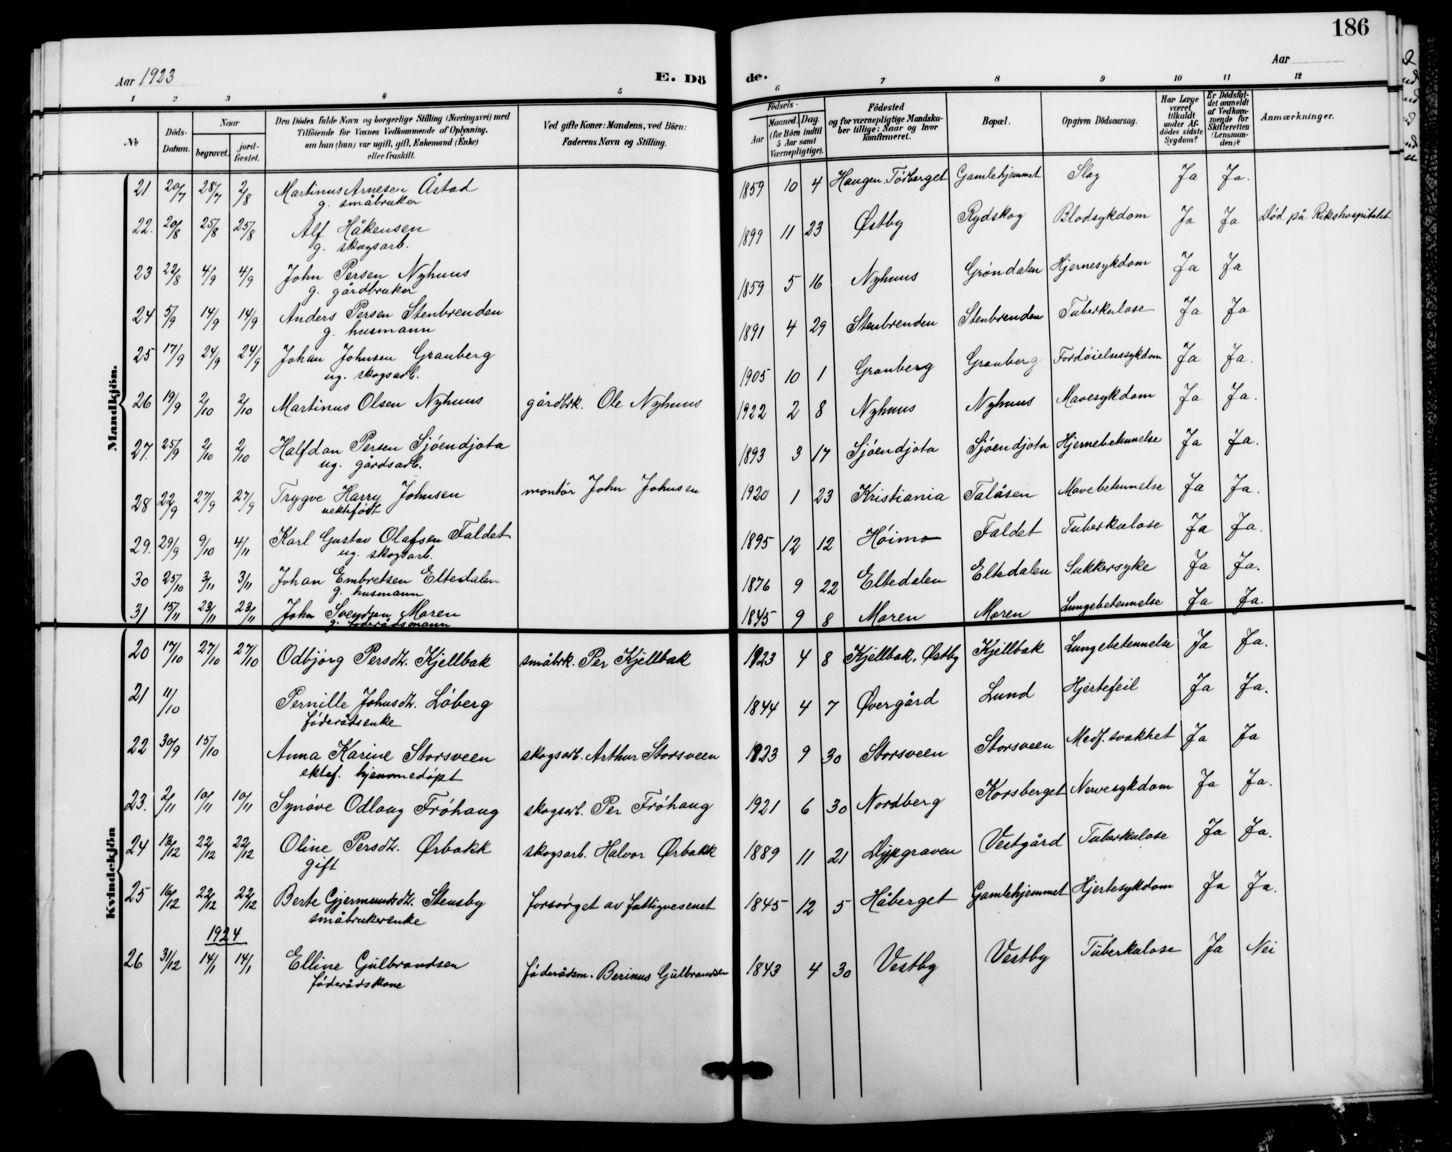 186
Aar 1923 E. Dö de. Aar
1 2 3 4 5 6 7 8 9 10 11 12
No. Döds-Datum. Naar begravet. jordfæstet. Den Dödes fulde Navn og borgerlige Stilling (Næringsvei) med Tilföiende for Voxnes Vedkommende af Oplysning, om han (hun) var ugift, gift, Enkemand (Enke) eller fraskilt. Ved gifte Koner: Mandens, ved Börn: Faderens Navn og Stilling. Födsels- Aar Maaned. Dag. (for Börn indtil 5 Aar samt Værnepligtige). Födested og for værnepligtige Mandskaber tillige: Naar og hvor konfirmeret. Bopæl. Opgiven Dödsaarsag. Har Læge været tilkaldt under Afdödes sidste Sygdom? Er Dödsfaldet anmeldt af Vedkommende for Skifteretten (Lensmanden)? Anmærkninger.
Mandkjön.
21 20/7 28/7 2/8 Martinus Arnesen Åstad 1859 10 4 Haugen, Törberget Gamlehjemmet Slag Ja Ja.
g. småbruker
22. 20/8 25/8 25/8 Alf Håkensen 1899 11 23 Østby Rydskog Blodsykdom Ja Ja Død på Rikshospitalet
g. skogsarb.
23 22/8 4/9 4/9 John Persen Nyhuus 1859 5 16 Nyhuus Grøndalen Hjernesykdom Ja Ja
g. gårdbruker
24 5/9 14/9 14/9 Anders Persen Stenbrenden 1891 4 29 Stenbrenden Stenbrenden Tuberkulose Ja Ja
g. husmann
25 17/9 24/9 24/9 Johan Johnsen Granberg 1905 10 1 Granberg Granberg Fordøielsessykdom Ja Ja.
ug. skogsarb.
26 19/9 2/10 2/10 Martinus Olsen Nyhuus gårdbrk. Ole Nyhuus 1922 2 8 Nyhuus Nyhuus Mavesykdom Ja Ja.
27. 25/9 2/10 2/10 Halfdan Persen Sjöendjota 1893 3 17 Sjöendjota Sjöendjota Hjernebetennelse Ja Ja.
ug. gårdsarb.
28 22/9 27/9 27/9 Trygve Harry Johnsen montør John Johnsen 1920 1 23 Kristiania Talåsen Mavebetennelse Ja Ja.
uektefødt
29. 29/9 9/10 4/11 Karl Gustav Olafsen Faldet 1895 12 12 Høimo Faldet Tuberkulose Ja Ja.
ug. skogsarb.
30 25/10 3/11 3/11 Johan Embretsen Eltedalen 1876 9 22 Eltedalen Eltedalen Sukkersyke Ja Ja.
g. husmann
31 15/11 23/11 23/11 John Svendsen Moren 1845 9 8 Moren Moren Lungebetennelse Ja Ja.
g. føderådsmann
Kvindekjön
20 17/10 27/10 27/10 Odbjörg Persdt. Kjellbak småbrk. Per Kjellbak 1923 4 8 Kjellbak, Østby Kjellbak Lungebetennelse Ja Ja.
21 11/10 Pernille Johnsdt. Löberg 1844 4 7 Øvergård Lund Hjertefeil Ja Ja.
föderådsenke
22 30/9 15/10 Anna Karine Storsveen skogsarb. Arthur Storsveen 1923 9 30 Storsveen Storsveen Medf. svakhet Ja Ja
ektef. hjemmedöpt
23. 2/11 10/11 10/11 Synöve Odlaug Fröhaug skogsarb. Per Fröhaug 1921 6 30 Nordberg Korsberget Nervesykdom Ja Ja.
24 12/12 22/12 22/12 Oline Persdt. Ørbakk skogsarb. Halvor Ørbakk 1889 11 21 Dypgraven Vestgård Tuberkulose Ja Ja.
gift
25 16/12 22/12 22/12 Berte Gjermundsdt. Stensby forsörget av fattigvesenet 1845 12 5 Håberget Gamlehjemmet Hjertesykdom Ja Ja.
småbrukerenke
1924
26 31/12 14/1 14/1 Elline Gulbrandsen föderådsm. Berinus Gulbrandsen 1843 4 30 Vestby Vestby Tuberkulose Ja Nei
föderådskone